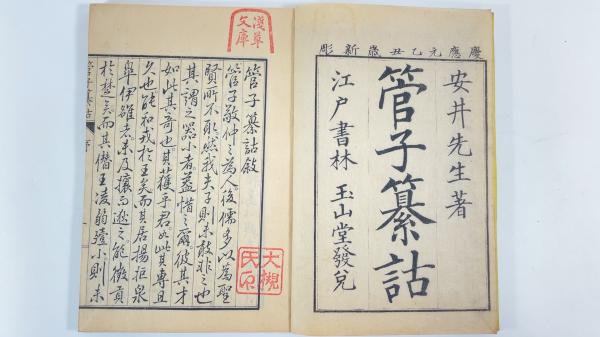 慶應元乙丑歳新彫
安井先生著
管子纂詁
江戸書林 玉山堂發兌
淺草文庫
管子纂詁敘
管子敬仲之為人後儒多以為聖
賢所不取然我夫子則未敢非之也
其謂之器小者蓋惜之爾彼其才
如此其奇也其獲乎君如此其專且
久也能和戎於王矣而其居揚拒泉
皐伊雒者未及攘而遂之能徵貢
於楚矣而其僭王凌弱蠶小則未